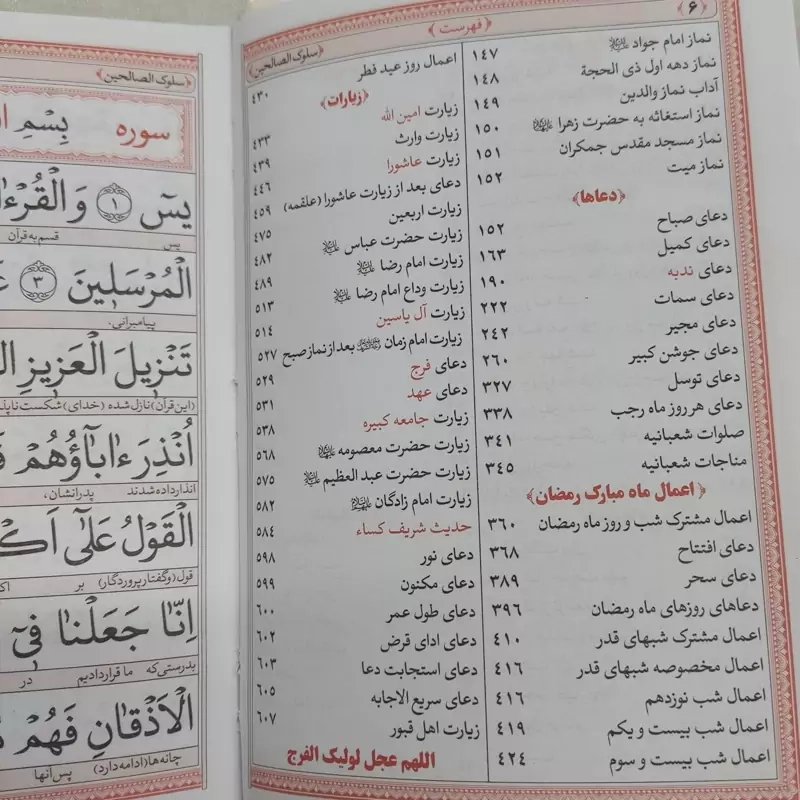 ۶
﴿فهرست﴾
﴿سلوک الصالحین﴾
نماز امام جواد ۱۴۷
نماز دهه اول ذی الحجة ۱۴۸
آداب نماز والدین ۱۴۹
نماز استغاثه به حضرت زهرا ۱۵۰
نماز مسجد مقدس جمکران ۱۵۱
نماز میت ۱۵۲
﴿دعاها﴾
دعای صباح ۱۵۲
دعای کمیل ۱۶۳
دعای ندبه ۱۹۰
دعای سمات ۲۲۲
دعای مجیر ۲۴۲
دعای جوشن کبیر ۲۶۰
دعای توسل ۳۲۷
دعای هر روز ماه رجب ۳۳۸
صلوات شعبانیه ۳۴۱
مناجات شعبانیه ۳۴۵
﴿اعمال ماه مبارک رمضان﴾
اعمال مشترک شب و روز ماه رمضان ۳۶۰
دعای افتتاح ۳۶۸
دعای سحر ۳۸۹
دعاهای روزهای ماه رمضان ۳۹۶
اعمال مشترک شبهای قدر ۴۱۰
اعمال مخصوصه شبهای قدر ۴۱۶
اعمال شب نوزدهم ۴۱۶
اعمال شب بیست و یکم ۴۱۹
اعمال شب بیست و سوم ۴۲۴
اعمال روز عید فطر ۴۳۰
﴿زیارات﴾
زیارت امین الله ۴۳۳
زیارت وارث ۴۳۹
زیارت عاشورا ۴۴۶
دعای بعد از زیارت عاشورا (علقمه) ۴۵۹
زیارت اربعین ۴۷۵
زیارت حضرت عباس ۴۸۲
زیارت امام رضا ۴۸۹
زیارت وداع امام رضا ۵۱۳
زیارت آل یاسین ۵۱۴
زیارت امام زمان بعد از نماز صبح ۵۲۷
دعای فرج ۵۲۹
دعای عهد ۵۳۱
زیارت جامعه کبیره ۵۳۸
زیارت حضرت معصومه ۵۶۸
زیارت حضرت عبد العظیم ۵۷۵
زیارت امام زادگان ۵۸۲
حدیث شریف کساء ۵۸۴
دعای نور ۵۹۸
دعای مکنون ۵۹۹
دعای طول عمر ۶۰۰
دعای ادای قرض ۶۰۲
دعای استجابت دعا ۶۰۳
دعای سریع الاجابه ۶۰۵
زیارت اهل قبور ۶۰۷
اللهم عجل لولیک الفرج
﴿سلوک الصالحین﴾
سوره
بِسْمِ
يسٓ ۱ وَالْقُرْءَا
یس قسم به قرآن
الْمُرْسَلِينَ ۳
پیامبرانی،
تَنْزِيلَ الْعَزِيزِ
(این قرآن) نازل شده (خدای) شکست
أُنْذِرَ ءَابَآؤُهُمْ
انذار داده شدند پدرانشان،
الْقَوْلُ عَلَىٰ
قول (و گفتار پروردگار) بر
إِنَّا جَعَلْنَا فِيٓ
بدرستی که ما قرار دادیم در
الْأَذْقَانِ فَهُمْ
چانه ها (ادامه دارد) پس آنها